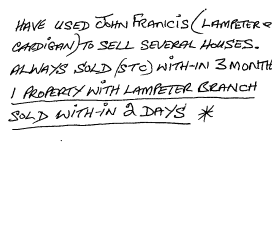 HAVE USED JOHN FRANCIS (LAMPETER &
CARDIGAN) TO SELL SEVERAL HOUSES.
ALWAYS SOLD (STC) WITH-IN 3 MONTH
1 PROPERTY WITH LAMPETER BRANCH
SOLD WITH-IN 2 DAYS *